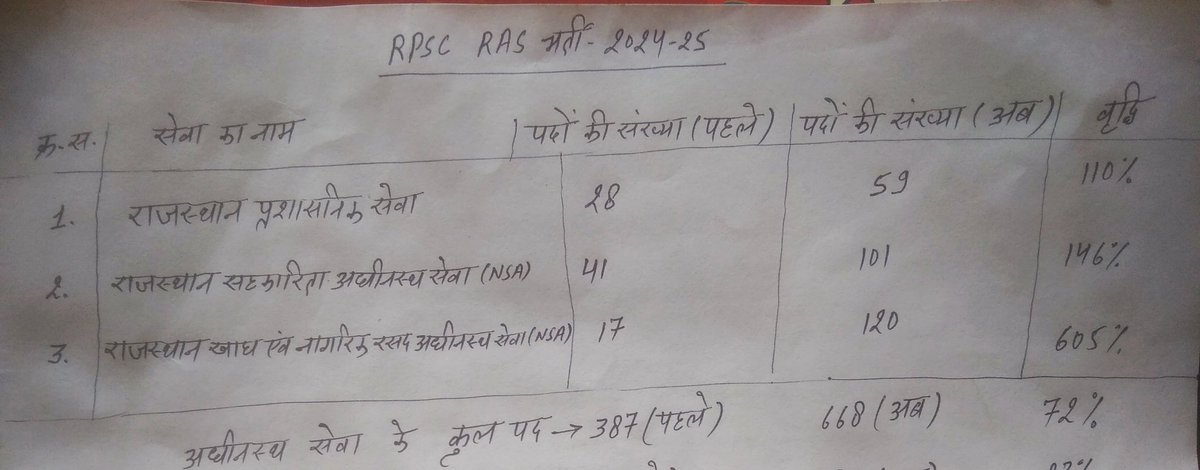 RPSC RAS भर्ती - 2024-25
क्र.स. सेवा का नाम पदों की संख्या (पहले) पदों की संख्या (अब) वृद्धि
1. राजस्थान प्रशासनिक सेवा 28 59 110%
2. राजस्थान सहकारिता अधीनस्थ सेवा (NSA) 41 101 146%
3. राजस्थान खाद्य एवं नागरिक रसद अधीनस्थ सेवा (NSA) 17 120 605%
अधीनस्थ सेवा के कुल पद → 387 (पहले) 668 (अब) 72%